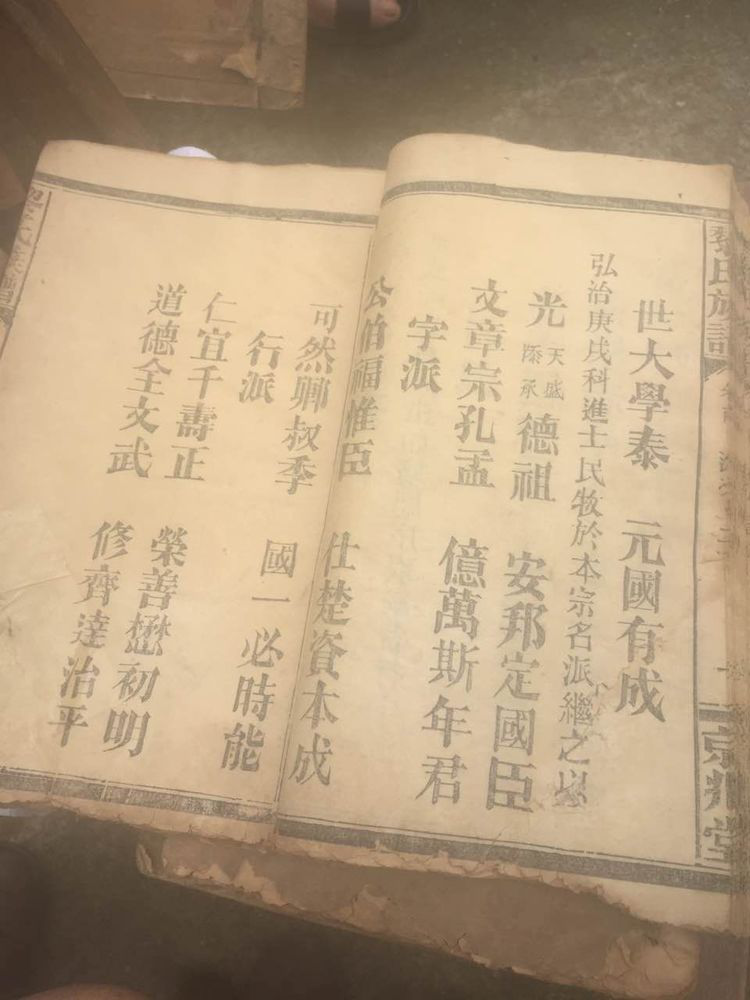 黎氏族譜
京兆堂
世大學泰　元國有成
弘治庚戌科進士民牧於本宗名派繼之以
光天盛添承德祖　安邦定國臣
文章宗孔孟　億萬斯年君
字派
公伯福惟臣　仕楚資本成
可然卿叔季　國一必時能
行派
仁宜千壽正　榮善懋初明
道德全文武　修齊達治平